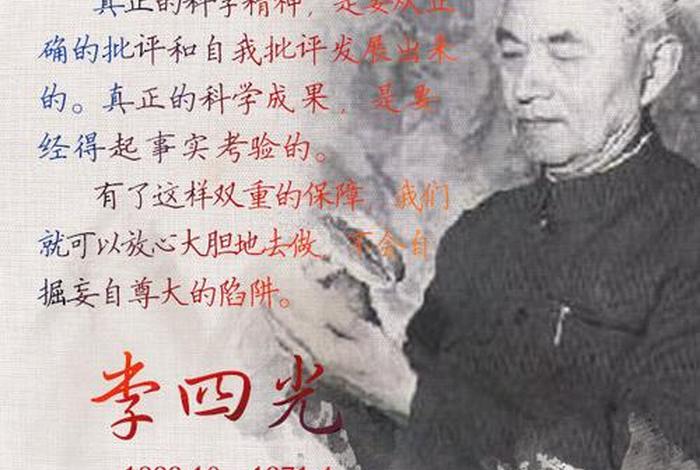 真正的科学精神，是要从正
确的批评和自我批评发展出来
的。真正的科学成果，是要
经得起事实考验的。
有了这样双重的保障，我们
就可以放心大胆地去做，不会自
掘妄自尊大的陷阱。
李四光